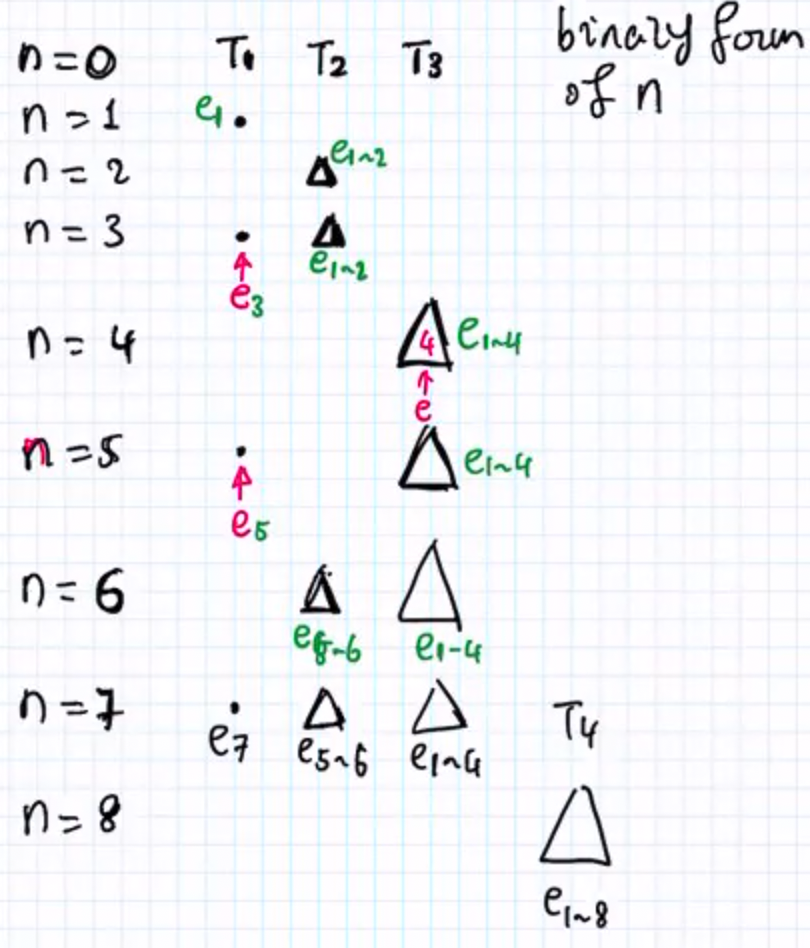 n=0 T₁ T₂ T₃ binary form
of n
n=1 e₁
n=2 e₁~₂
n=3
e₁~₂
e₃
n=4 4 e₁~₄
e
n=5 e₁~₄
e₅
n=6
e₅~₆ e₁-₄
n=7 T₄
e₇ e₅~₆ e₁~₄
n=8
e₁~₈